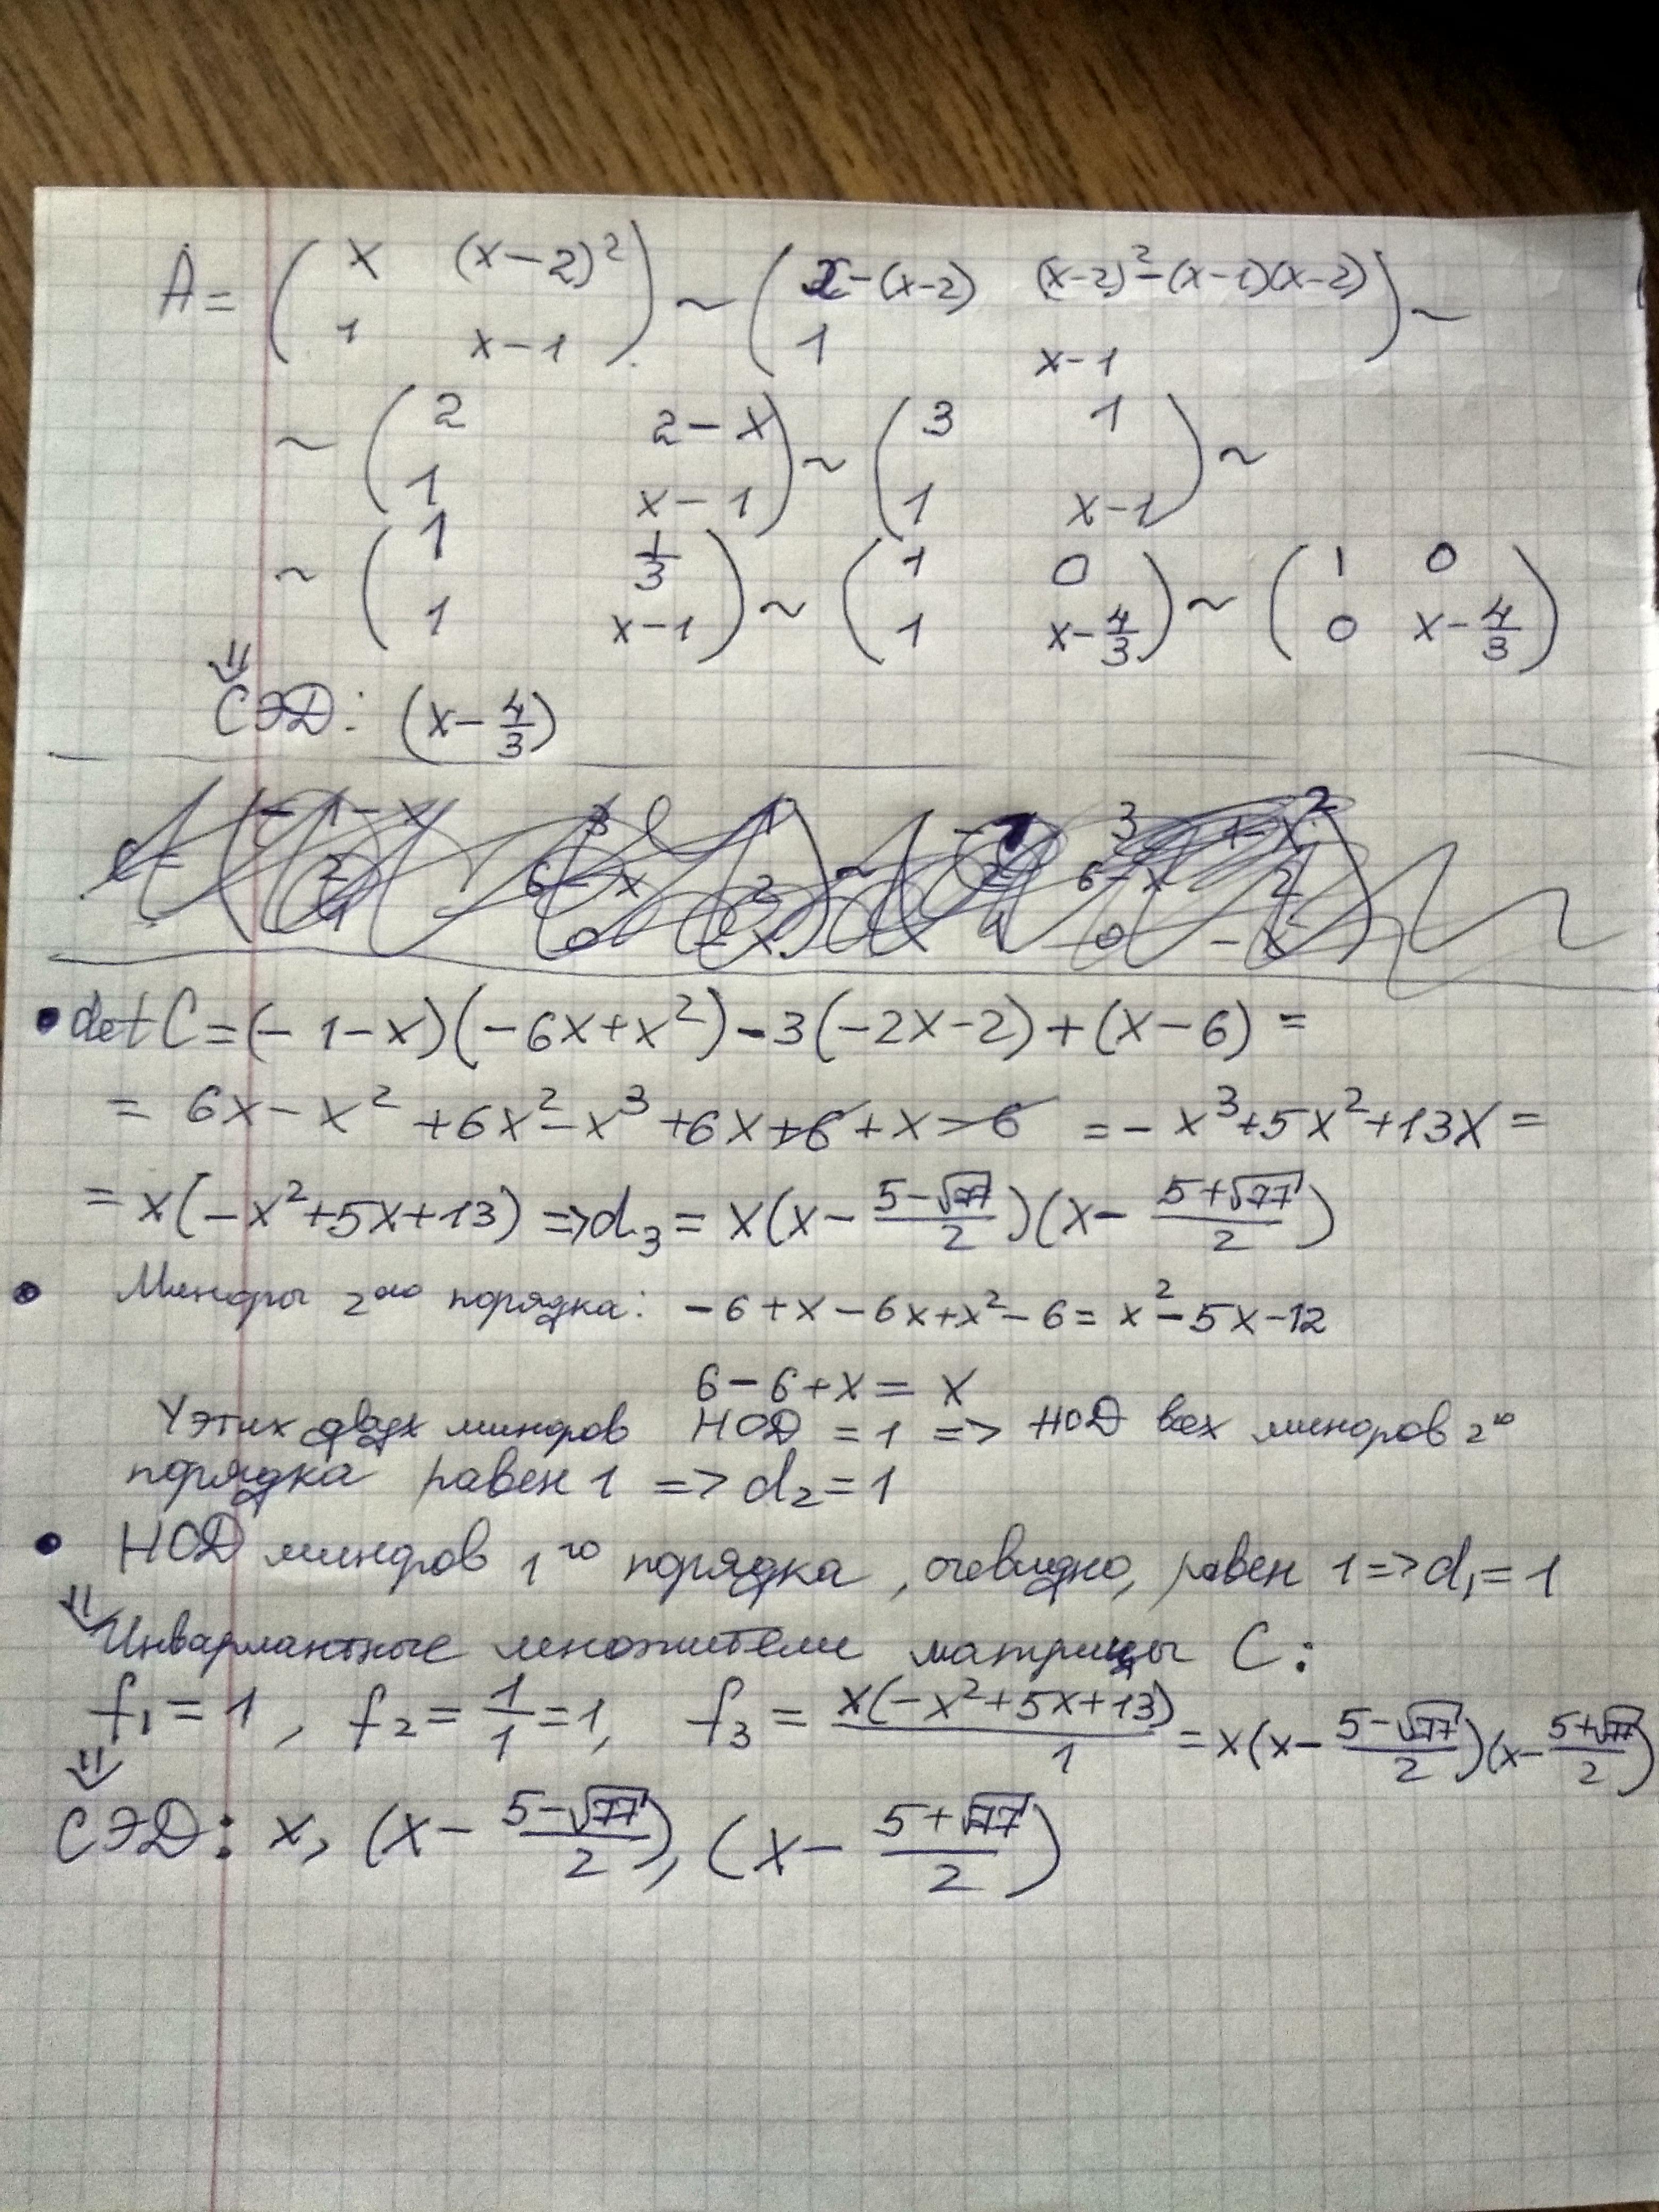 A = ( x (x-2)² ; 1 x-1 ) ~ ( x-(x-2) (x-2)²-(x-1)(x-2) ; 1 x-1 ) ~
~ ( 2 2-x ; 1 x-1 ) ~ ( 3 1 ; 1 x-1 ) ~
~ ( 1 1/3 ; 1 x-1 ) ~ ( 1 0 ; 1 x-4/3 ) ~ ( 1 0 ; 0 x-4/3 )
⇓
СЭД: (x-4/3)
• det C = (-1-x)(-6x+x²)-3(-2x-2)+(x-6) =
= 6x-x²+6x²-x³+6x+6+x-6 = -x³+5x²+13x =
= x(-x²+5x+13) => d₃ = x(x-(5-√77)/2)(x-(5+√77)/2)
• Миноры 2ого порядка: -6+x-6x+x²-6 = x²-5x-12
6-6+x = x
У этих двух миноров НОД = 1 => НОД всех миноров 2го
порядка равен 1 => d₂ = 1
• НОД миноров 1го порядка, очевидно, равен 1 => d₁ = 1
⇓
Инвариантные множители матрицы C:
f₁ = 1, f₂ = 1/1 = 1, f₃ = x(-x²+5x+13)/1 = x(x-(5-√77)/2)(x-(5+√77)/2)
⇓
СЭД: x, (x-(5-√77)/2), (x-(5+√77)/2)